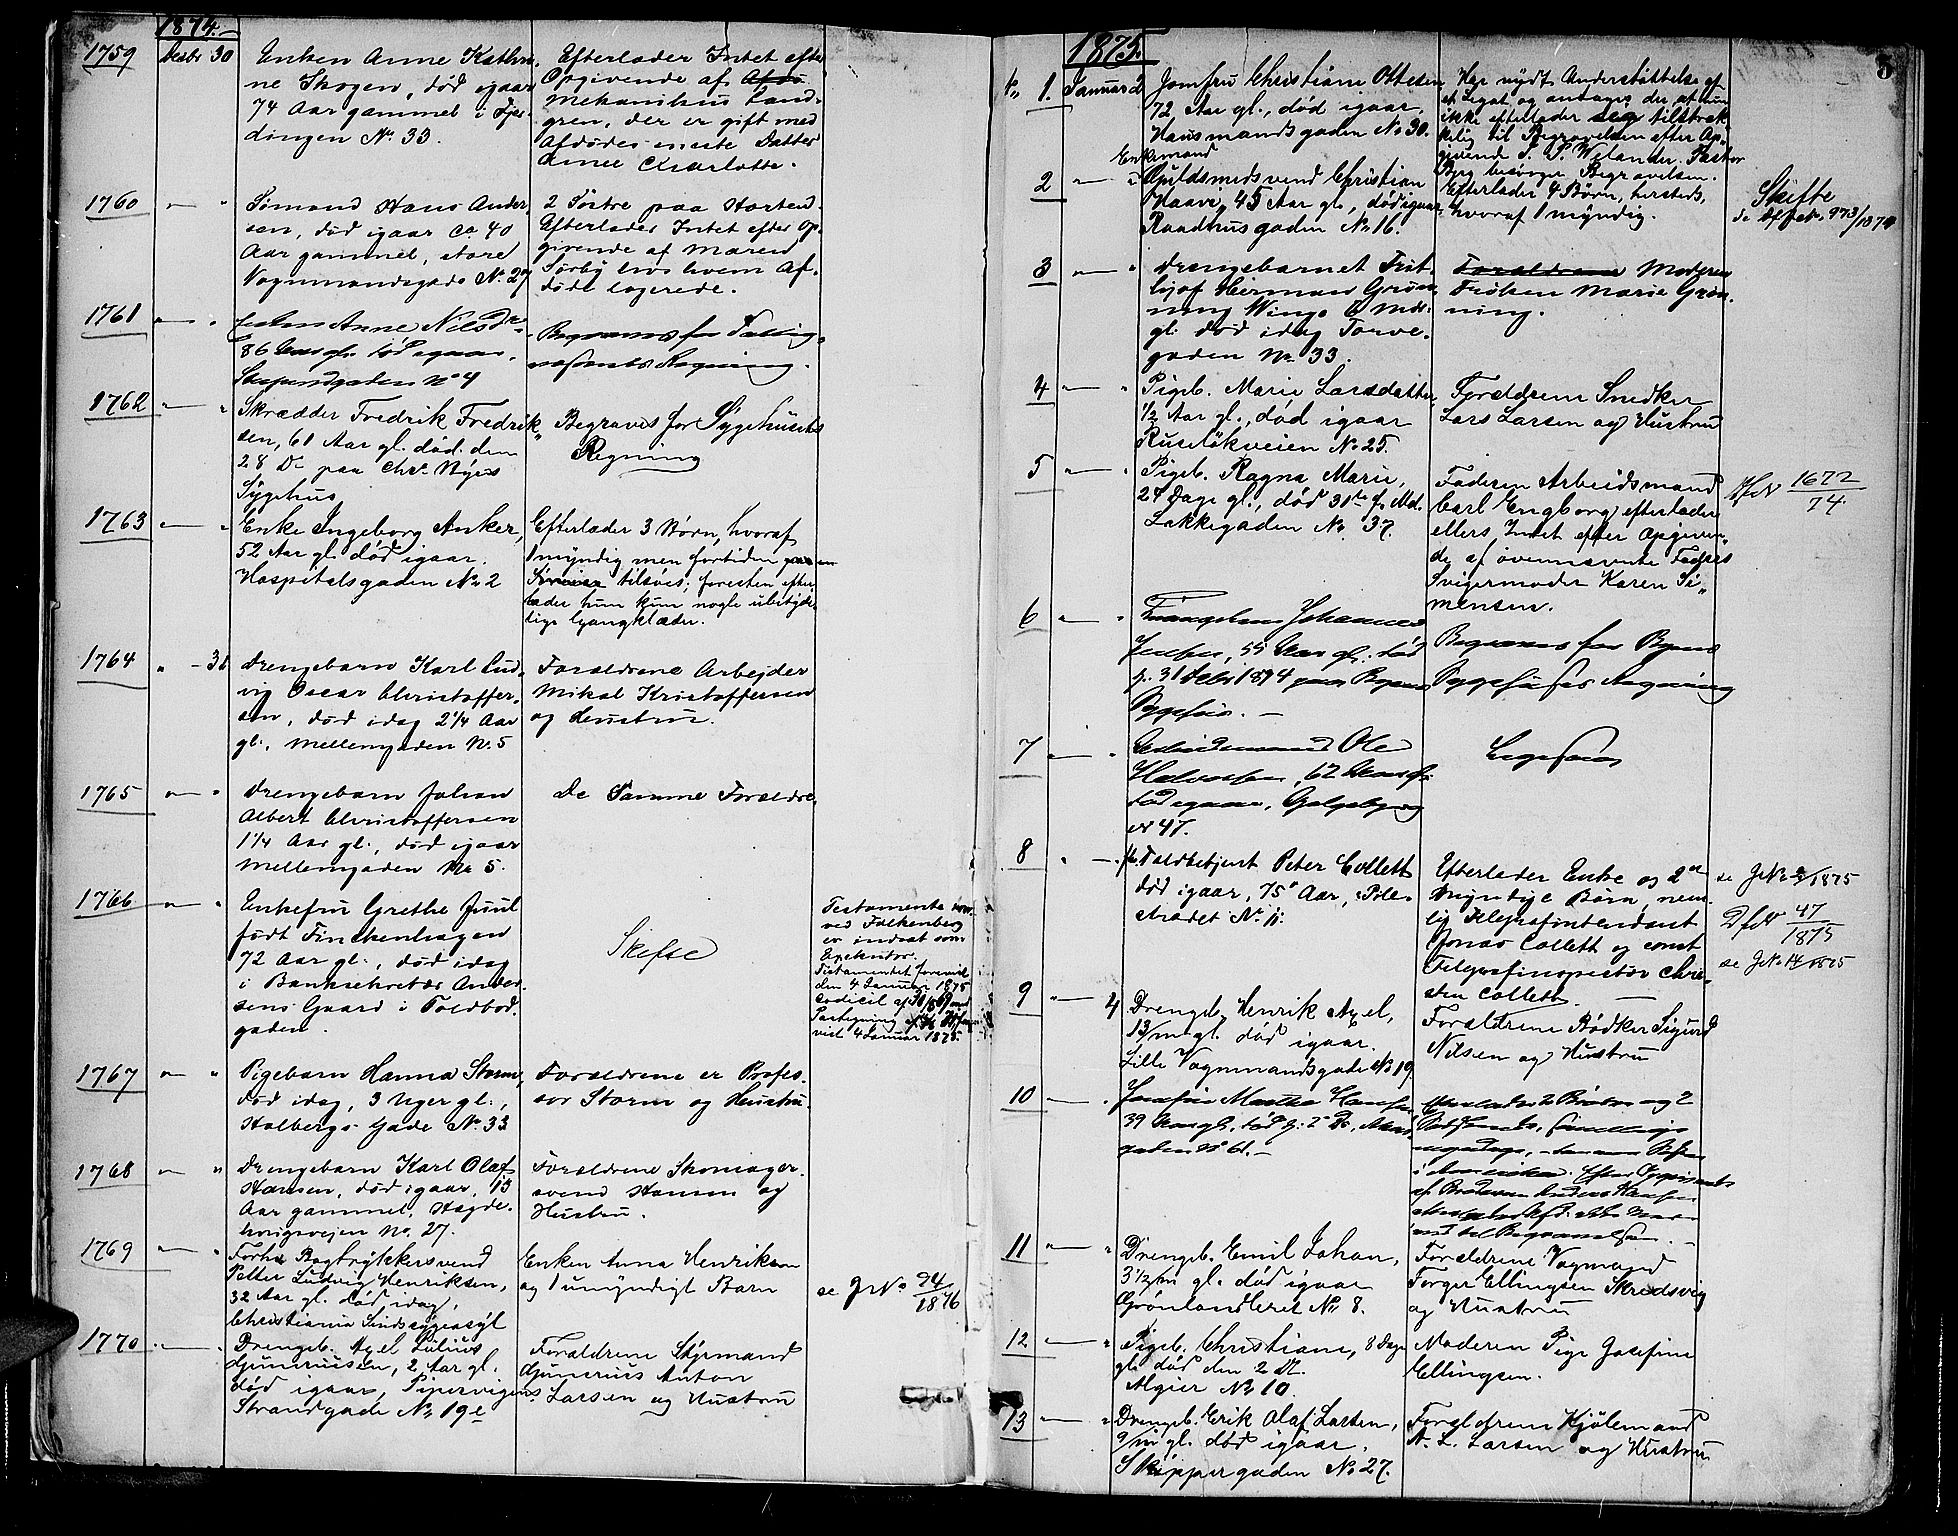 1874.
1759 Decbr 30 Enken Anne Kathri-
ne Skogen, død igaar
74 Aar gammel i Fjer-
dingen No 33.
Efterlader Intet efter
Opgivende af
Mekanikus Lund-
gren, der er gift med
Afdødes eneste Datter
Charlotte.
1760 — " Sømand Hans Ander-
sen, død igaar ca 40
Aar gammel, store
Vognmandsgade No 27
2 Søstre paa Horten.
Efterlader Intet efter Op-
givende af Maren
Sørby hos hvem Af-
døde logerede.
1761 — " Anne Nilsdr
86 Aar gl. død igaar.
No 4
Begraves for Fattig-
væsenets Regning.
1762 — " Skrædder Fredrik Fredrik-
sen, 61 Aar gl. død. den
28 Ds paa Chra Byes
Sygehus
Begraves for Sygehusets
Regning
1763 — " Enke Ingeborg Anker,
52 Aar gl. død igaar.
Hospitalsgaden No 2
Efterlader 3 Børn, hvoraf
1 myndig men fortiden paa en
tilsøes; foresten efter-
lader hun kun nogle ubetyde-
lige Gangklæder.
1764 " - 31 Drengebarn Karl Lud-
vig Oscar Christoffer-
sen, død idag 2 1/4 Aar
gl., Mellemgaden No. 5
Forældrene Arbejder
Mikal Kristoffersen
og Hustru.
1765 — " Drengebarn Johan
Albert Christoffersen
1 1/4 Aar gl., død igaar
Mellemgaden No 5.
De Samme Forældre.
1766 — " Enkefru Grethe Juul
født Finckenhagen
72 Aar gl., død idag
i Banksekretær Ander-
sens Gaard i Toldbod-
gaden.
Skifte
Testamente
ved Falkenberg
er indsat som
Executor.
Testamentet forevist
den 4 Januar 1875
Codicil af
Paategning af
vist 4 Januar 1875.
1767 — " Pigebarn Hanna Storm,
død idag, 3 Uger gl.,
Holbergs Gade No. 33
Forældrene er Profes-
sor Storm og Hustru.
1768 — " Drengebarn Karl Olaf
Hansen, død igaar, 13
Aar gammel, Hegde-
haugsvejen No. 27.
Forældrene Skomager-
svend Hansen og
Hustru.
1769 — " Forhv Bogtrykkersvend
Petter Ludvig Henriksen,
32 Aar gl. død idag,
Christiania Sindssygeasyl
Enken Anna Henriksen
og 1 umyndigt Barn
se JNo 94/1876
1770 — " Drengeb. Axel Julius
Gjunerius­sen, 2 Aar gl.
død igaar, Pipervigens
Strandgade No. 19e
Forældrene Styrmand
Gjunerius Anton
Larsen og Hustru
1875.
5
1. Januar 2 Jomfru Christiane Ottesen
72 Aar gl., død igaar
Hausmandsgaden No 30.
Har nydt Understøttelse af
et Legat og antages der at hun
ikke efterlader seg tilstræk-
kelig til Begravelsen efter Op-
givende S. P. Welander. Pastor
Berg besørger Begravelsen.
2 — " Enkemand
Guldsmedsvend Christian
Haave, 45 Aar gl., død igaar,
Raadhusgaden No 16.
Efterlader 4 Børn, hersteds,
hvoraf 1 myndig.
Skifte
se 973/1874
3 — " Drengebarnet Frit-
hjof Herman Grøn-
ning Winge 6 Mdr.
gl. død idag Torve-
gaden No. 33.
Forældrene Moderen
Frøken Marie Grøn-
ning.
4 — " Pigeb. Marie Larsdatter,
1/2 Aar gl., død igaar
Ruseløkveien No 25.
Forældrene Snedker
Lars Larsen og Hustru
5 — " Pigeb. Ragna Marie,
24 Dage gl., død 31te f. Md.
Lakkegaden No. 37.
Faderen Arbeidsmand
Carl Engborg, efterlader
ellers Intet efter Opgiven-
de af ovennævnte Faders
Svigermoder Karen Si-
mensen.
DfNo 1672/74.
6 — " Johannes
55 Aar gl. død
p. 31 Decbr 1874 paa Byens
Sygehus. —
Begraves for Byens
Sygehuses Regning
7 — " Arbeidsmand Ole
Halvorsen, 62 Aar gl.
død igaar, Galgeberg
No 47.
Ligesaa
8 " — Toldbetjent Peter Collett
død igaar, 75 Aar, Pile-
strædet No. 11.
Efterlader Enke og 2de
myndige Børn, nem-
lig Telegrafintendant
Jonas Collett og const
Telegrafinspektør Chri-
stian Collett. —
se JNo 2/1875
DfNo 47/1875
se JNo 14/1875
9 " — 4 Drengeb. Henrik Axel,
13/m gl. død igaar.
Lille Vognmandsgade No 19.
Forældrene Bødker Sigurd
Nilsen og Hustru
10 — " Jomfru Marthe Hansen
39 Aar gl., død d. 2 Ds,
gaden No 61. —
Efterlader 2 Brødre og 2
i Amerika. Efter Opgivende
af Broderen Anders Hansen
til Begravelsen. —
11 " — " Drengeb. Emil Johan,
3 1/2/m gl. død igaar
Grønlandleret No. 8.
Forældrene Vognmand
Torger Ellingsen Skredsvig
og Hustru
12 — " Pigeb. Christiane, 8 Dage
gl. død den 2 Ds.
Algier No 10.
Moderen Pige Josefine
Ellingsen.
13 — " Drengeb. Erik Olaf Larsen,
9/m gl. død igaar.
Skippergaden No 27.
Forældrene Kjølemand
A. L. Larsen og Hustru